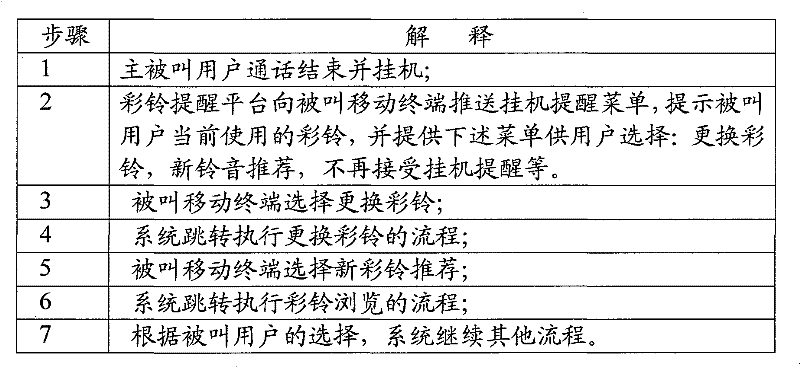 步骤 解 释
1 主被叫用户通话结束并挂机;
2 彩铃提醒平台向被叫移动终端推送挂机提醒菜单,提示被叫
用户当前使用的彩铃,并提供下述菜单供用户选择:更换彩
铃,新铃音推荐,不再接受挂机提醒等。
3 被叫移动终端选择更换彩铃;
4 系统跳转执行更换彩铃的流程;
5 被叫移动终端选择新彩铃推荐;
6 系统跳转执行彩铃浏览的流程;
7 根据被叫用户的选择,系统继续其他流程。